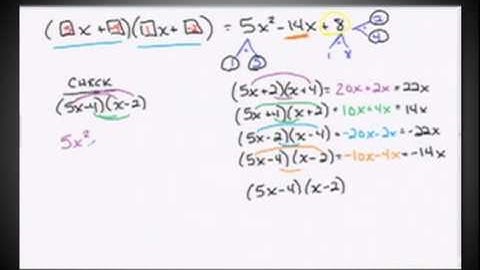 (5x + -4)(1x + -2) = 5x² - 14x + 8
2
4
1 5
1 8
CHECK
(5x-4)(x-2)
5x²
(5x+2)(x+4) = 20x+2x = 22x
(5x+4)(x+2) = 10x+4x = 14x
(5x-2)(x-4) = -20x-2x = -22x
(5x-4)(x-2) = -10x-4x = -14x
(5x-4)(x-2)